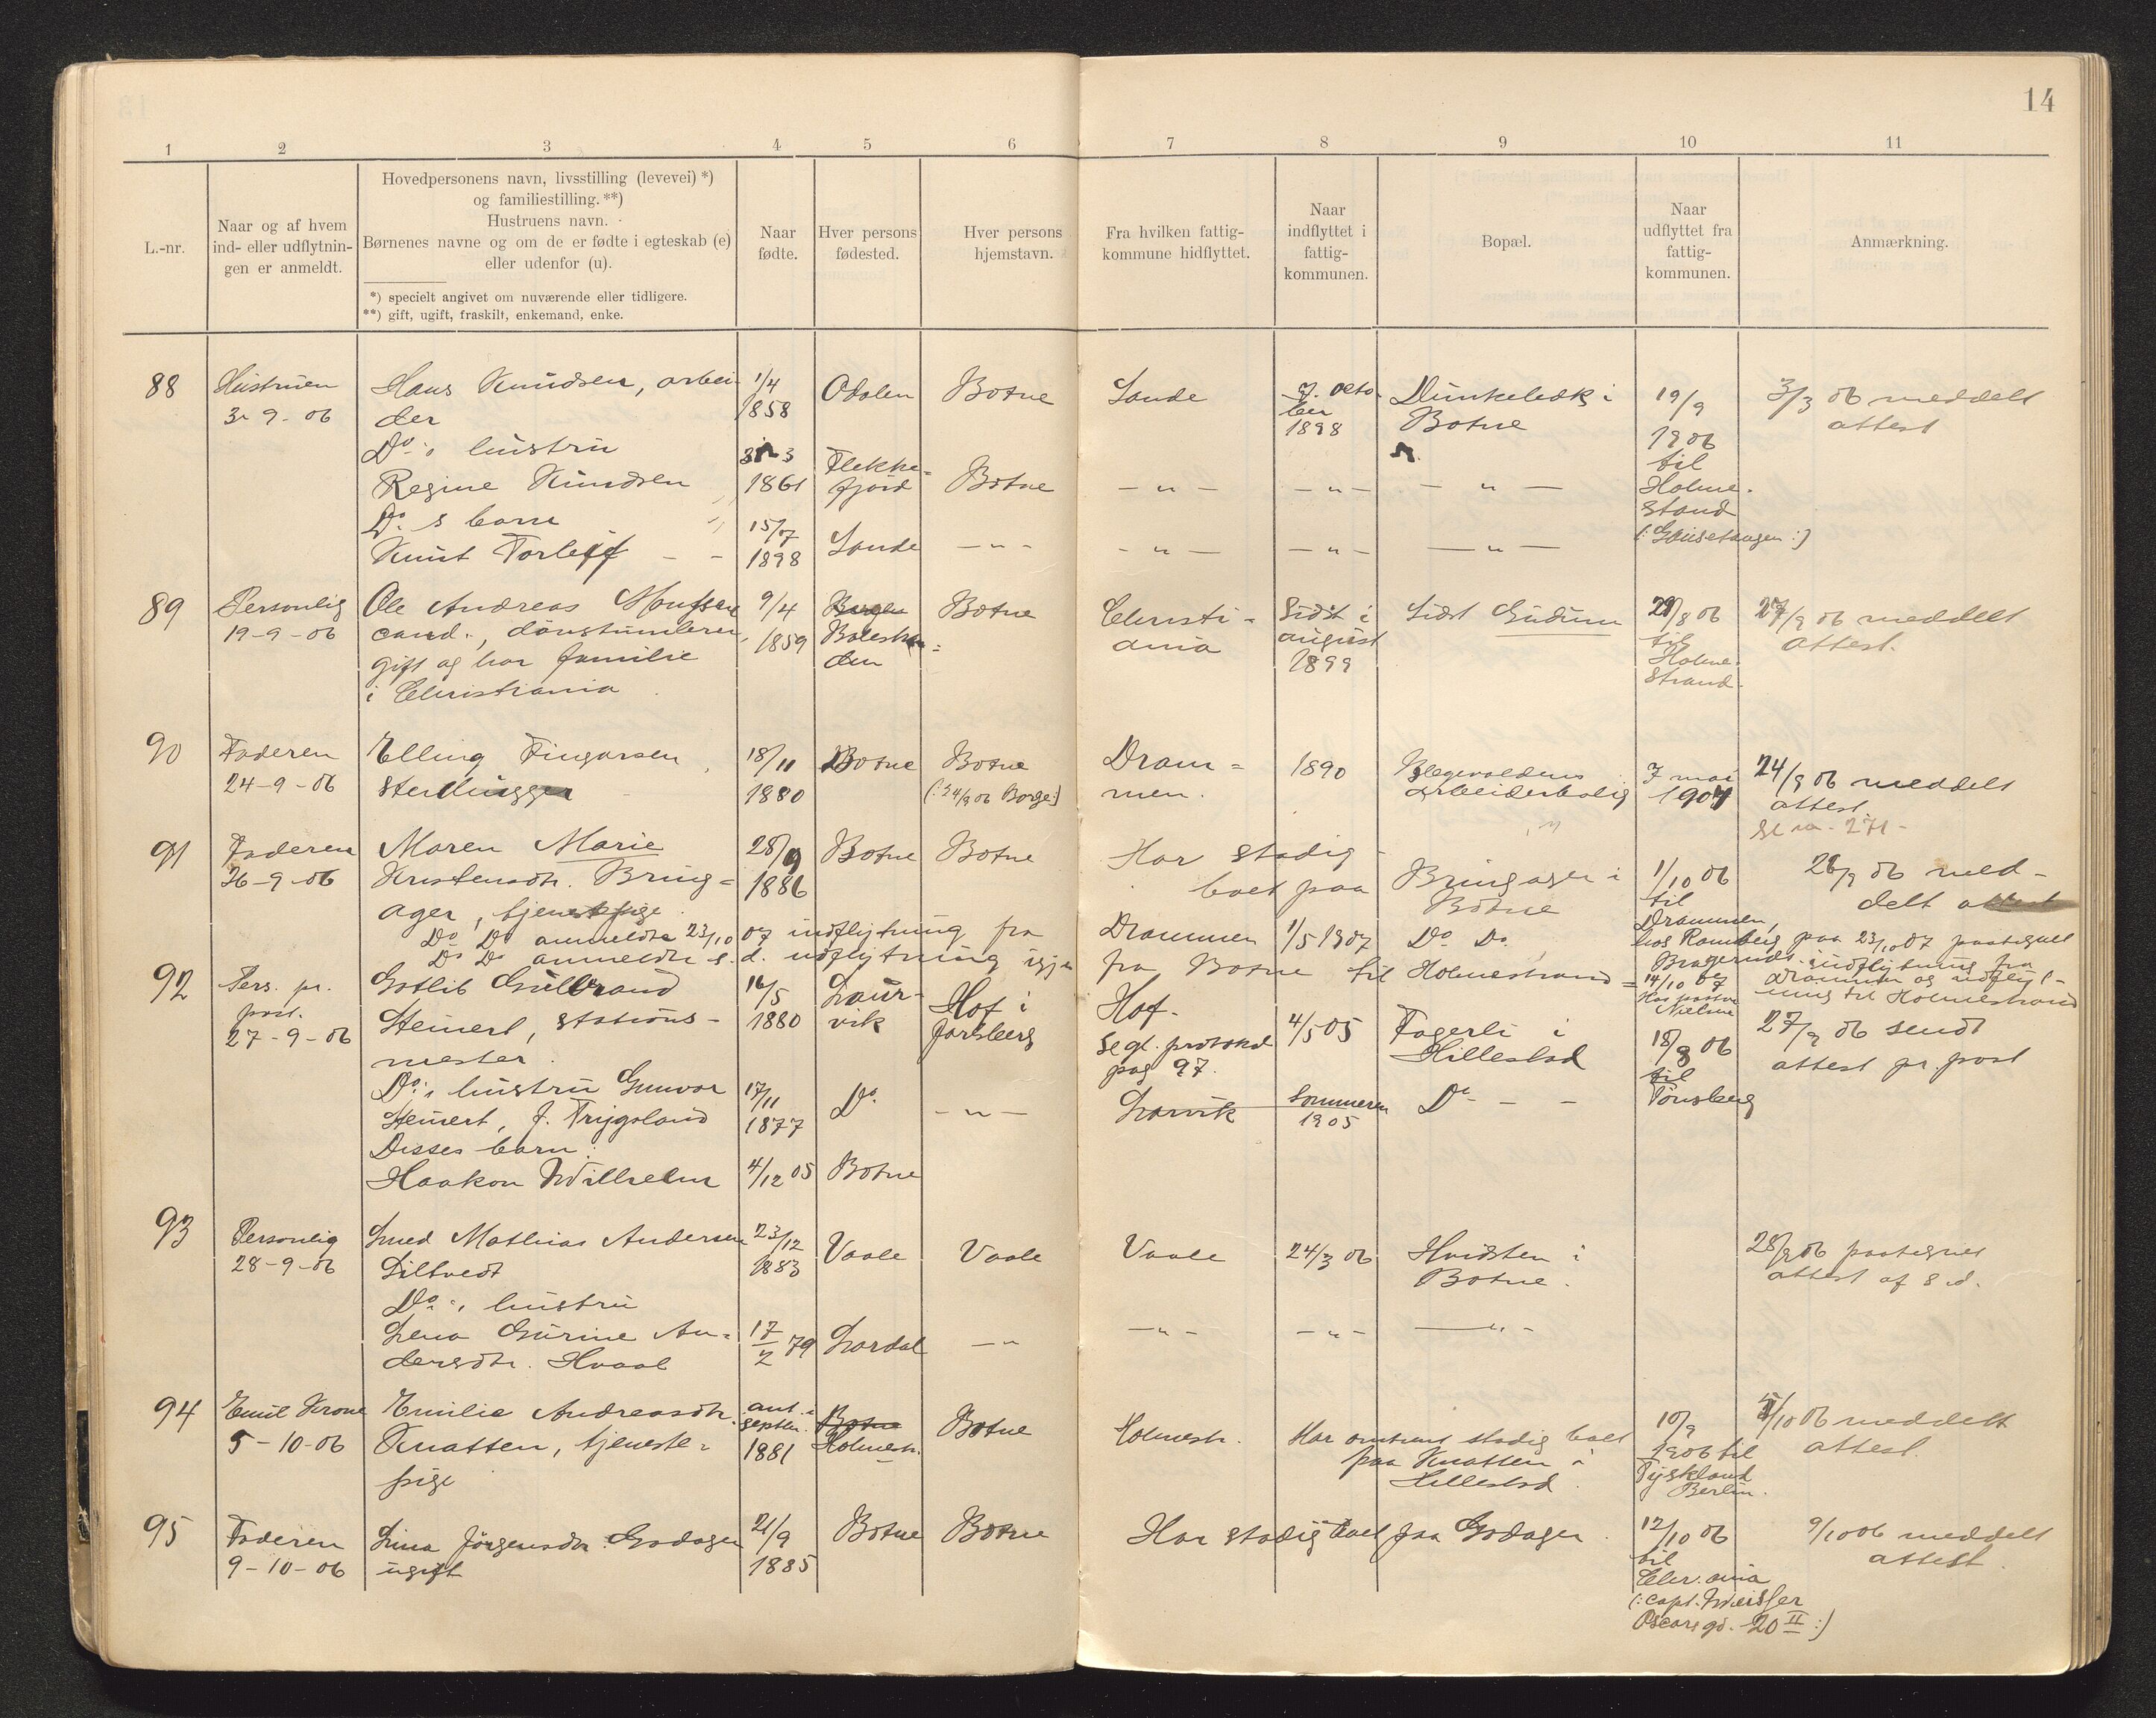 14
1 2 3 4 5 6 7 8 9 10 11
L.-nr.
Naar og af hvem
ind- eller udflytnin-
gen er anmeldt.
Hovedpersonens navn, livsstilling (levevei) *)
og familiestilling. **)
Hustruens navn.
Børnenes navne og om de er fødte i egteskab (e)
eller udenfor (u).
*) specielt angivet om nuværende eller tidligere.
**) gift, ugift, fraskilt, enkemand, enke.
Naar
fødte.
Hver persons
fødested.
Hver persons
hjemstavn.
Fra hvilken fattig-
kommune hidflyttet.
Naar
indflyttet i
fattig-
kommunen.
Bopæl.
Naar
udflyttet fra
fattig-
kommunen.
Anmærkning.
88
Hustruen
3-9-06
Hans Knudsen, arbei-
der
Do. s hustru
Regine Knudsen
Do. s barn
Knut Torleif
1/4
1858
3
1861
15/7
1898
Odalen
Flekke-
fjord
Sande
Botne
Botne
— " —
Sande
— " —
— " —
7. octo-
ber
1898
— " —
— " —
Botne
— " —
— " —
19/9
1906
til
Holme-
strand
(: Gausetangen :)
3/3 06 meddelt
attest
89
Personlig
19-9-06
Ole Andreas
cand.,
gift og har familie
i Christiania
9/4
1859
Botne
Christi-
ania
Sidst i
august
1899
Sidst Gudum
/8 06
til
Holme-
strand
/9 06 meddelt
attest.
90
Faderen
24-9-06
Elling
18/11
1880
Botne
Botne
(: 24/9 06 Borge :)
Dram-
men.
1890
arbeiderbolig
7 mai
24/9 06 meddelt
attest.
Se nr. 271
91
Faderen
26-9-06
Maren Marie
Kristensdtr. Bring-
ager, tjenestepige
28/9
1886
Botne
Botne
Har stadig
boet paa
Bringager i
Botne
1/10 06
til
Drammen,
hos Ramberg paa
Bragernes
26/9 06 med-
delt attest
Do Do anmeldte 23/10 07 indflytning fra Drammen 1/5 1907 Do Do.
Do Do anmeldte s. d. udflytning igjen fra Botne til Holmestrand 14/10 07
Hos pastor
Nielsen
23/10 07 paategnet
indflytning fra
Drammen og udflyt-
ning til Holmestrand
92
Pers. pr.
post.
27-9-06
Gotlib Gulbrand
Steinert, stations-
mester
Do. s hustru Gunvor
Steinert, f. Trygsland
Disses barn:
Haakon Wilhelm
16/5
1880
17/11
1877
4/12 05
Laur-
vik
Do.
Botne
Hof i
Jarlsberg
— " —
Hof.
Se gl. protokol
pag 97.
Larvik
4/5 05
Sommeren
1905
Fagerli i
Hillestad
Do — —
18/8 06
til
Tønsberg
27/9 06 sendt
attest pr. post
93
Personlig
28-9-06
Smed Mathias Andersen
Siltvedt
Do. s hustru
Lena Gurine An-
dersdtr. Hvaal
23/12
1883
17/2 79
Vaale
Lardal
Vaale
— " —
Vaale
— " —
24/3 06
— " —
Hvidsten i
Botne.
— " —
28/9 06 paategnet
attest af s. d.
94
Emil Krone
5-10-06
Emilie Andreasdtr.
Knatten, tjeneste-
pige
ant. i
septbr.
1881
Botne
Holmestr.
Botne
Holmestr.
Har omtrent stadig boet
paa Knatten i
Hillestad.
10/9
1906 til
Tyskland
Berlin.
5/10 06 meddelt
attest.
95
Faderen
9-10-06
Lina Jørgensdtr. Godager
ugift
21/9
1885
Botne
Botne
Har stadig boet paa Godager.
12/10 06
til
Chr.ania
(: Capt. Weisser
Oscarsgd. 20 II :)
9/10 06 meddelt
attest.